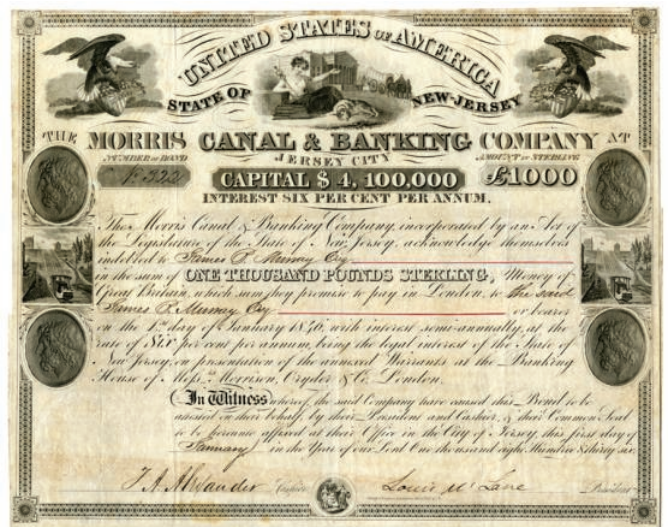 UNITED STATES OF AMERICA
STATE OF NEW-JERSEY
THE MORRIS CANAL & BANKING COMPANY AT
JERSEY CITY
NUMBER OF BOND
AMOUNT IN STERLING
CAPITAL $ 4,100,000
£1000
INTEREST SIX PER CENT PER ANNUM.
The Morris Canal & Banking Company, incorporated by an Act of
the Legislature of the State of New Jersey, acknowledge themselves
indebted to James
in the sum of ONE THOUSAND POUNDS STERLING, Money of
Great Britain, which sum they promise to pay in London, to the said
James or bearer
on the 1st day of January with interest semi-annually, at the
rate of Six per cent per annum, being the legal interest of the State of
New Jersey, on presentation of the annexed Warrants at the Banking
House of Mess.rs Morrison, Cryder & Co. London.
In Witness whereof, the said Company have caused this Bond to be
attested on their behalf, by their President and Cashier, & their Common Seal
to be hereunto affixed at their Office in the City of Jersey, this first day of
January in the Year of our Lord One thousand eight Hundred & thirty six.
Cashier
Louis McLane President